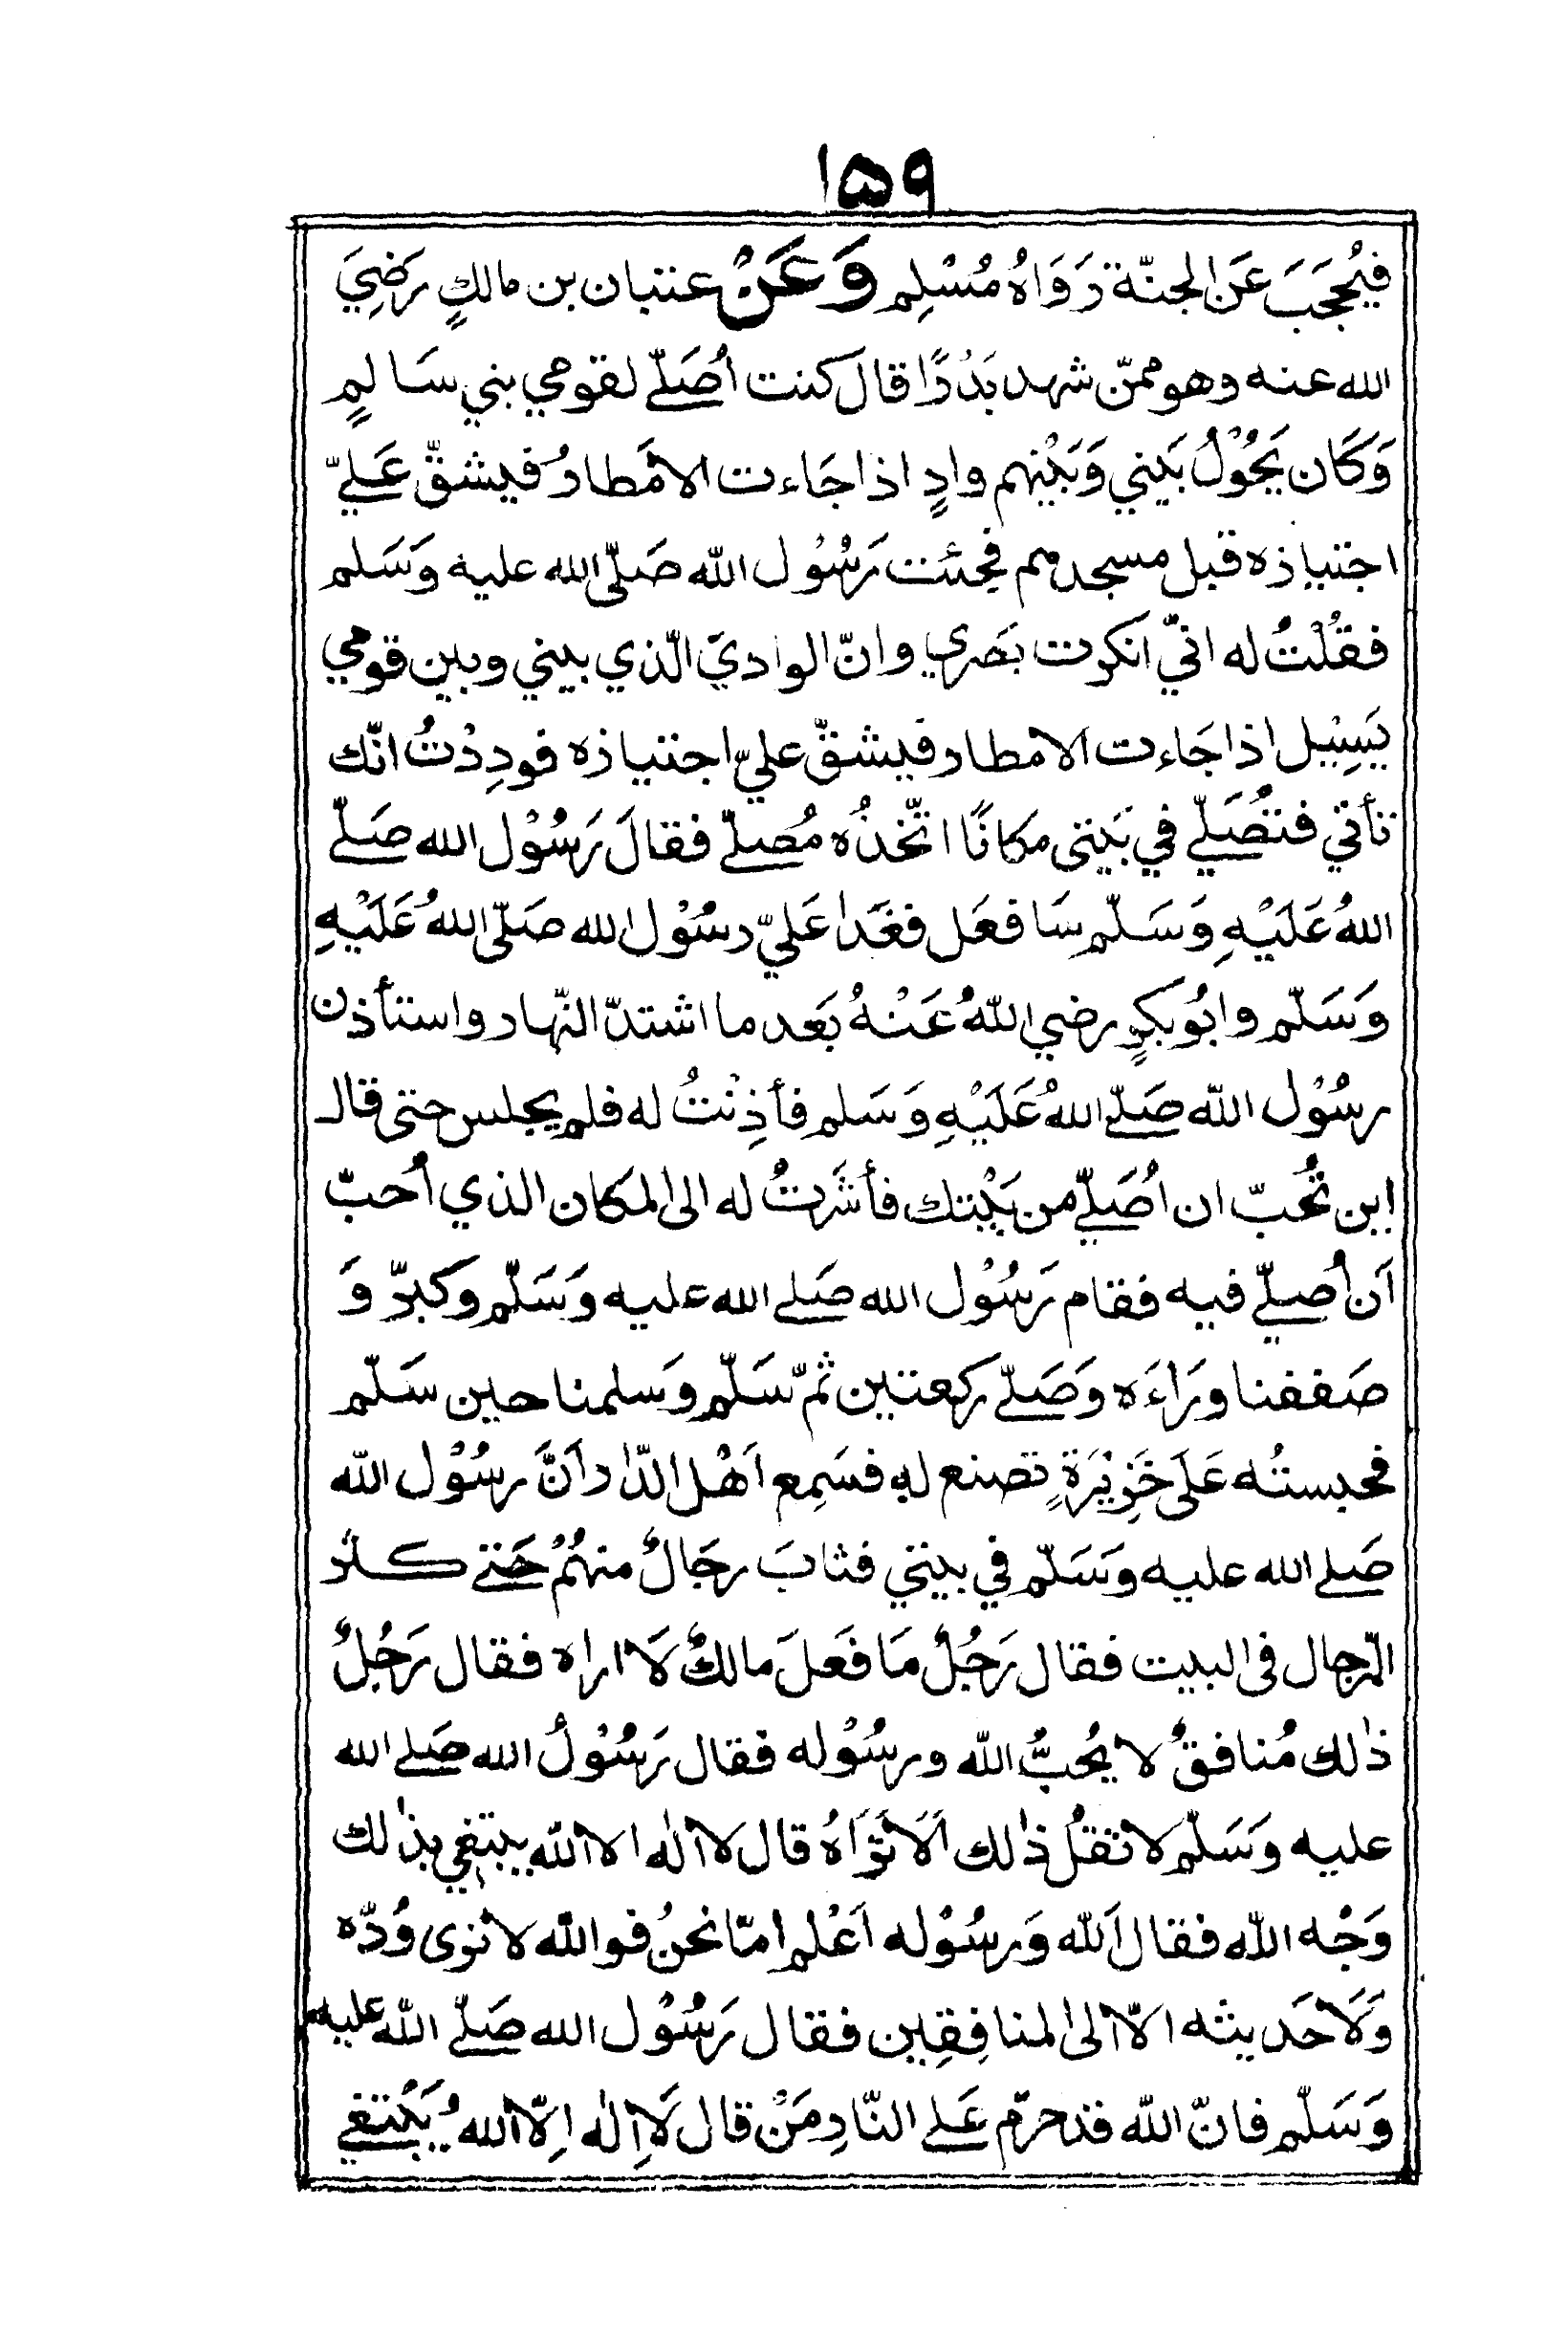 ١٥٩
فيُحجَبَ عَن الجنّة رَوَاهُ مُسْلِم وَعَنْ عتبان بن مالكٍ رَضِيَ
الله عنه وهو ممّن شهد بَدْرًا قال كنت أُصَلّي لقومي بني سَالمٍ
وَكَان يَحُوْلُ بَيني وَبَيْنهم وادٍ اذا جَاءت الامَطارُ فيشقّ عَليّ
اجتيازه قبل مسجدهم فجئت رَسُوْل الله صَلّى الله عليه وَسَلم
فقُلْتُ له انّي انكرت بَصَري وانّ الواديَ الّذي بيني وبين قومي
يَسِيْل اذا جَاءت الامطار فيشقّ عليّ اجتيازه فودِدْتُ انّك
تأتي فتُصَلّي في بَيتى مكانًا اتّخذُه مُصلّے فقالَ رَسُوْل الله صَلّے
اللهُ عَلَيْهِ وَسَلّم سَافعَل فغَدا عَليّ رسُوْل الله صَلّى اللهُ عَلَيْهِ
وَسَلّم وابُوبكرٍ رضي اللهُ عَنْهُ بَعد ما اشتدّ النّهار واستأذن
رسُوْل الله صَلّے اللهُ عَلَيْهِ وَسَلم فأذِنْتُ له فلم يجلس حتى قال
اين تُحُبّ ان اُصَلّي من بَيْتك فأشَرتُ له الى المكان الذي اُحبّ
اَن اُصلّي فيه فقام رَسُوْل الله صَلے الله عليه وَسَلّم وكبّر وَ
صَففنا ورَاءَه وَصَلّے ركعتين ثمّ سَلّم وَسلمنا حين سَلّم
فحبستُه عَلَى خَزِيْرَةٍ تصنع له فسَمِع اَهْل الدّار اَنَّ رسُوْل الله
صَلے الله عليه وَسَلّم في بيتي فثابَ رجَالٌ منهُمْ حَتے كثر
الرّجال فى البيت فقال رَجُلٌ مَا فَعَلَ مالكٌ لَا اراه فقال رَجُلٌ
ذٰلك مُنافقٌ لا يُحُبُّ الله ورسُوْله فقال رَسُوْلُ الله صَلے الله
عليه وَسَلّم لا تقُلْ ذٰلك اَلَا تَرَاهُ قال لا اله الا الله يبتغي بذٰلك
وَجْه الله فقال اَلله وَرسُوْله اَعْلم امّا نحنُ فوالله لا نرى وُدّه
وَلَا حَديثه الّا الى المنافِقِين فقال رَسُوْل الله صَلّے الله عليه
وَسَلّم فانّ الله قد حرّم عَلے النّارِ مَنْ قال لَا اِلٰه اِلّا اللهُ يَبْتغي